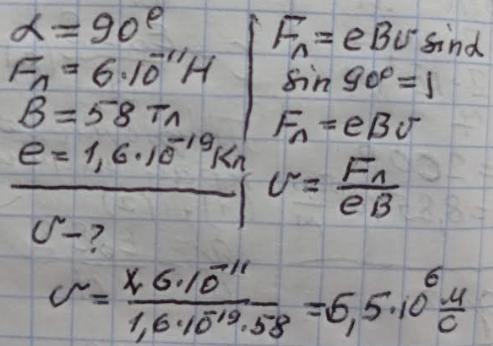 α = 90°
Fл = 6·10⁻¹¹ Н
B = 58 Тл
e = 1,6·10⁻¹⁹ Кл
υ - ?
Fл = eBυ sinα
sin 90° = 1
Fл = eBυ
υ = Fл / eB
υ = 6·10⁻¹¹ / 1,6·10⁻¹⁹·58 = 6,5·10⁶ м/с